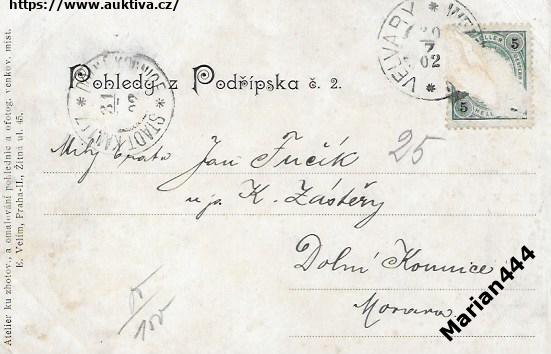 https://www.auktiva.cz/
VELVARY
20
7
02
5
5
Pohledy z Podřípska č. 2.
STADT KANITZ
Milý bratr
Jan Fučík
25
u p. K. Zástěry
Dolní Kounice
Morava.
100
Atelier ku zhotov., a omalování pohlednic a ofotog. venkov. míst.
E. Velím, Praha-II., Žitná ul. 45.
Marian444